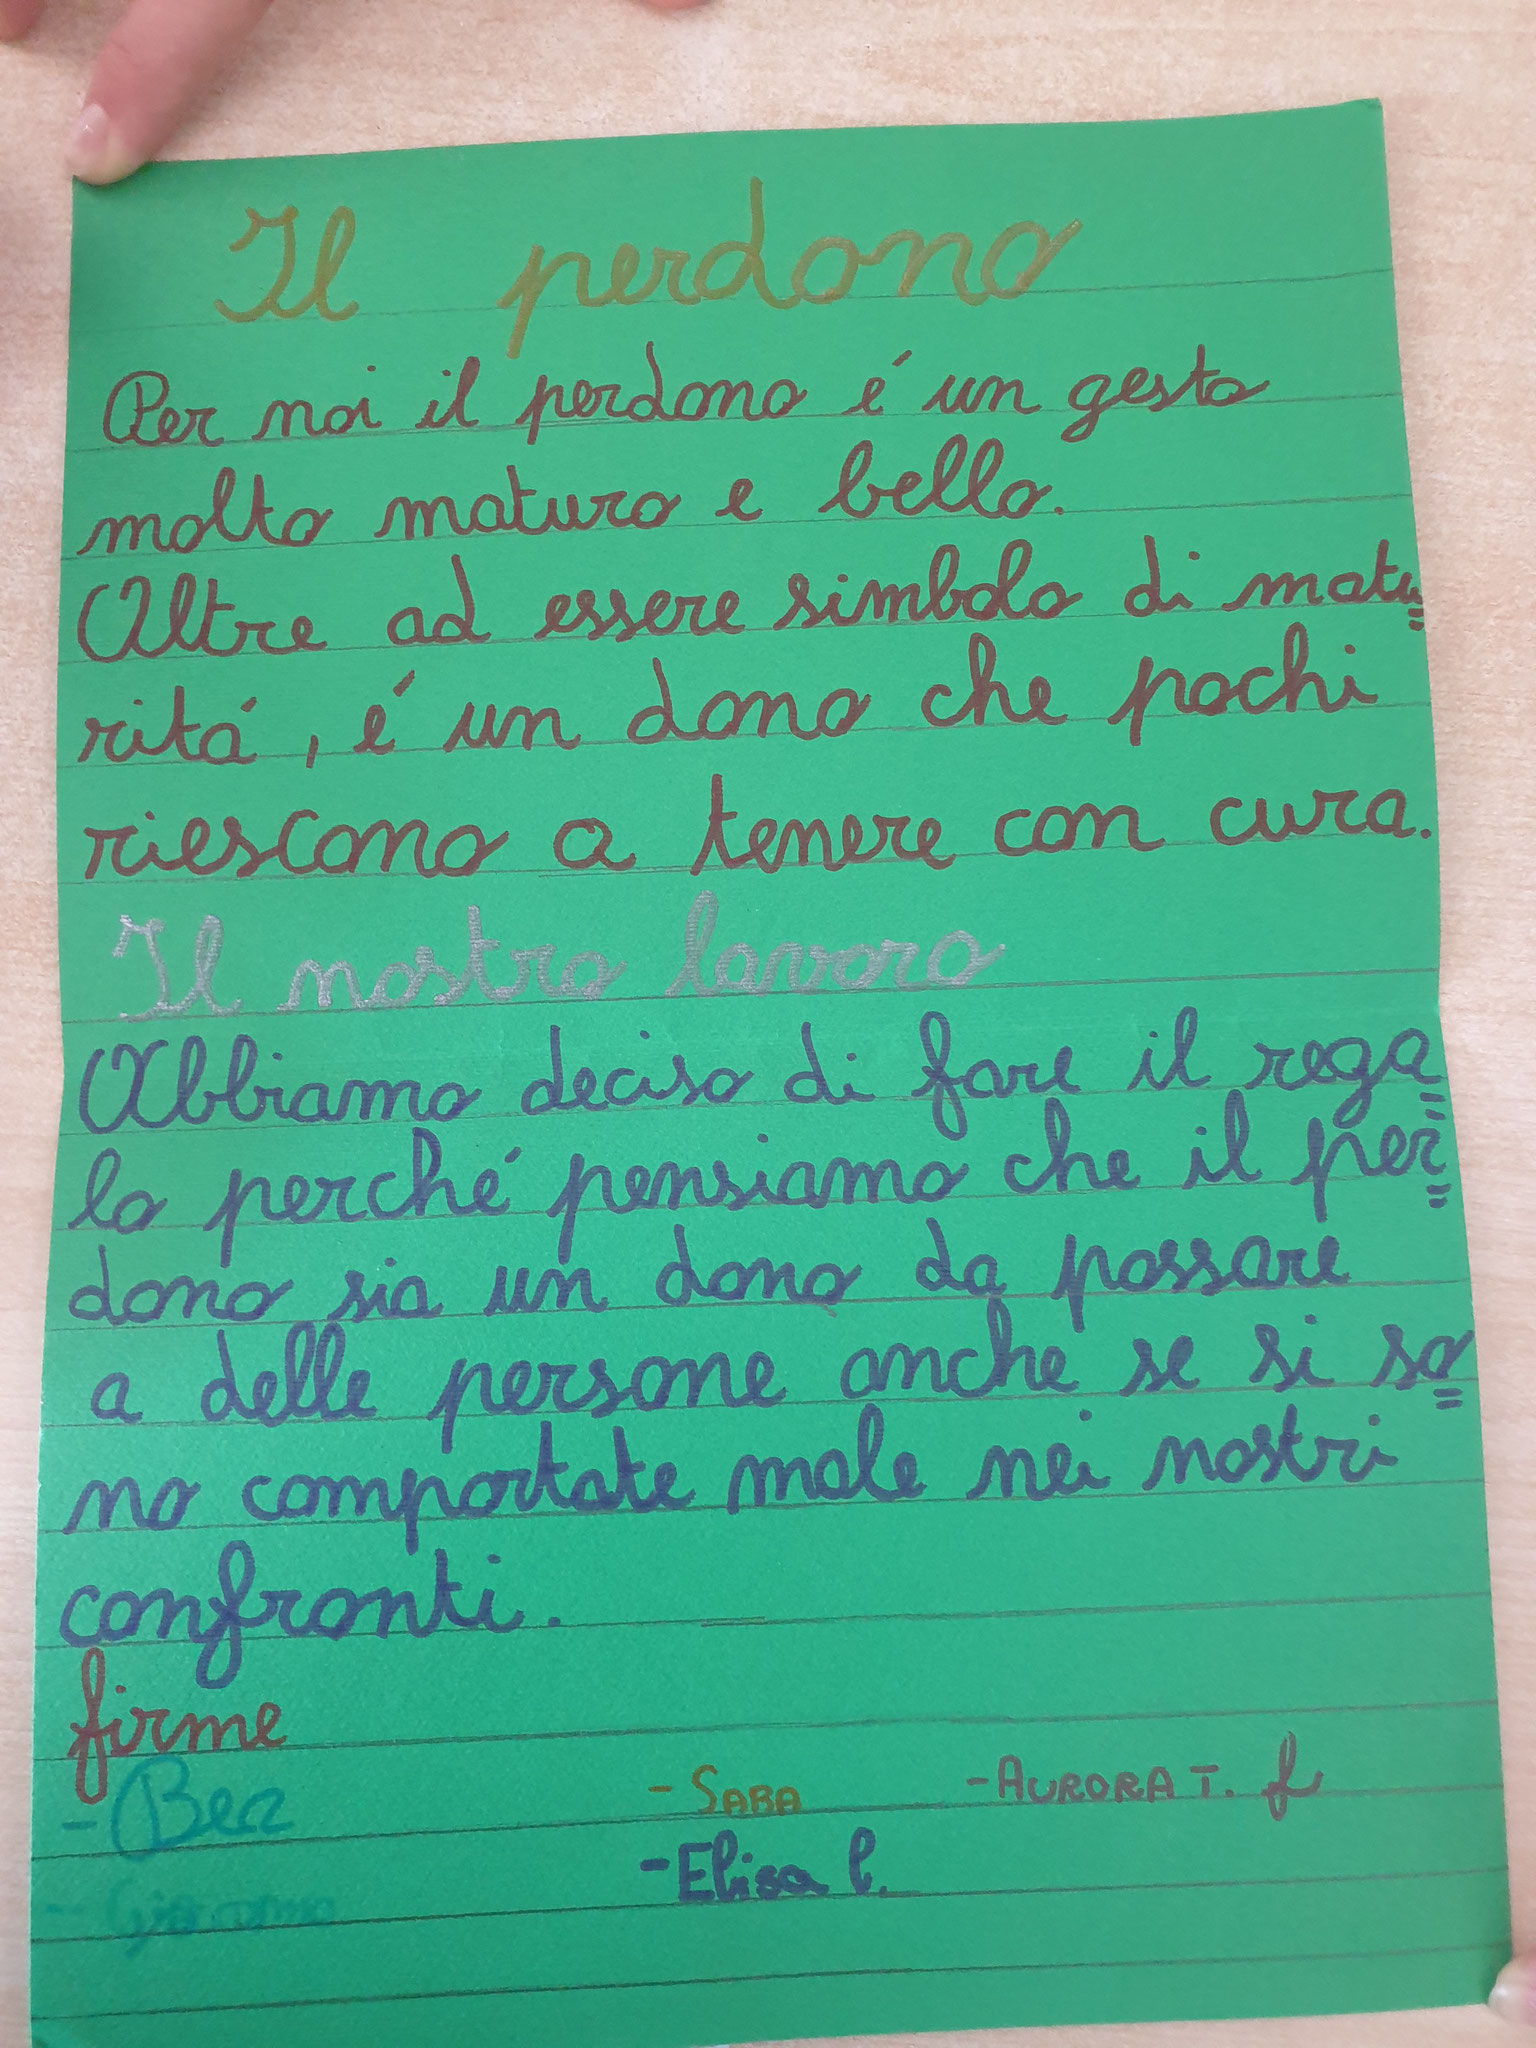 Il perdono
Per noi il perdono é un gesto
molto maturo e bello.
Oltre ad essere simbolo di matu=
ritá, é un dono che pochi
riescono a tenere con cura.
Il nostro lavoro
Abbiamo deciso di fare il rega=
lo perché pensiamo che il per=
dono sia un dono da passare
a delle persone anche se si so=
no comportate male nei nostri
confronti.
firme
-Bea -SARA -AURORA T. f
- -Elisa l.